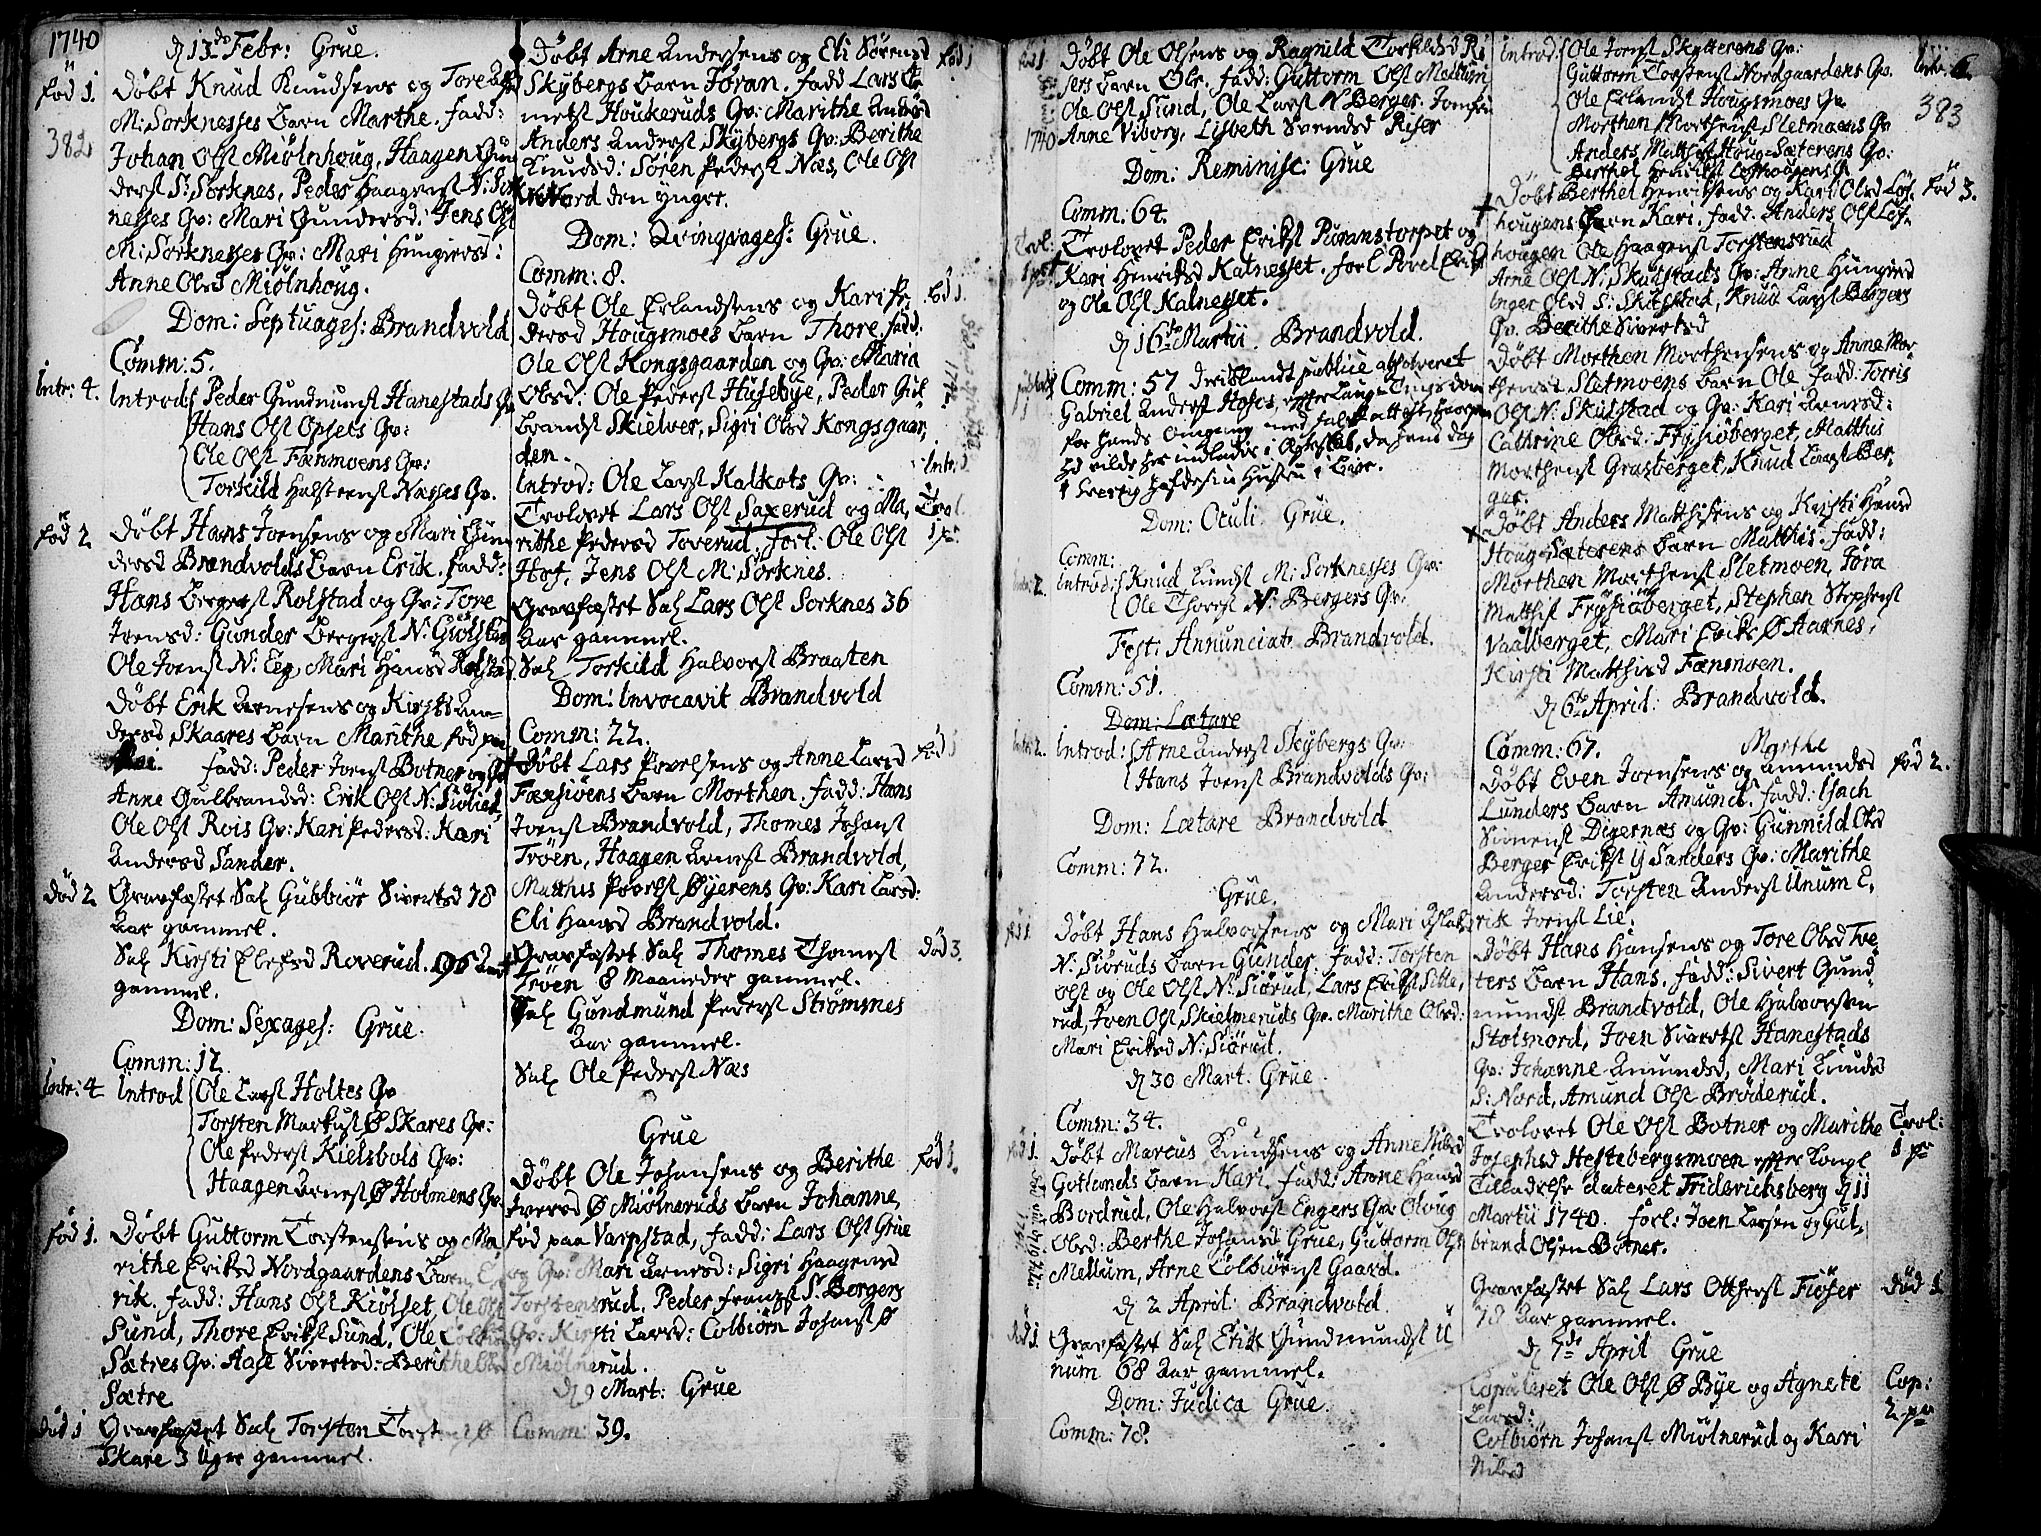 1740
382
d 13de Febr: Grue.
fød 1.
Døbt Knud Knudsens og Tore
M: Sorknesses barn Marthe. fadd:
Johan Olst Miølnhoug, Haagen Gun
derst S: Sorknes, Peder Haagenst N: Sork
nesses Qv: Mari Gundersd: Jens Olst
M: Sorknesses Qv: Mari
Anne Olsd Miølnhoug.
Dom: Septuages: Brandvold
Comm: 5.
Intr: 4.
Introd: Peder Gundmunst Hanestads Qv
Hans Olst Opsets Qv:
Ole Olst Fænmoens Qv:
Torkild Halsteenst Næsses Qv.
fød 2
Døbt Hans Joensens og Mari Gun
dersd Brandvolds barn Erik. fadd:
Hans Bergerst Rolstad og Qv: Tore
Joensd: Gunder Bergerst N:
Ole Joenst N: Eeg, Mari Hansd Rolstad
Døbt Erik Arnesens og Kirsti An-
dersd Skaares barn Marithe fød paa
fadd: Peder Joenst Botner og Qv
Anne Gulbrandsd: Erik Olst N:
Ole Olst Rois Qv: Kari Pedersd: Kari
Andersd Sander.
Død 2
Gravfæstet Sal Gubbiør Sivertsd 78
Aar gammel.
Sal Kirsti Roverud. 96 Aar
gammel.
Dom: Sexages: Grue.
Comm: 12.
Intr: 4
Introd Ole Larst Holtes Qv
Torsten Markust Ø Skares Qv:
Ole Pederst Kielsbols Qv:
Haagen Arnest Ø Holmens Qv
fød 1.
Døbt Guttorm Torstensens og Ma
rithe Eriksd Nordgaardens barn E
rik. fadd: Hans Olst Kiølset, Ole Olst
Sund, Thore Erikst Sund, Ole
Sætres Qv: Aase Sivertsd: Berithe Olsd
Sætre
Død 1
Gravfæstet Sal Torsten Torst Ø
Skare 3 Uger gammel.
Døbt Arne Andersens og Eli Sørensd
fød 1
Skybergs barn Joran. fadd Lars
metst Houkeruds Qv: Marithe
Anders Anderst Skybergs Qv: Berithe
Knudsd: Søren Pederst Næs, Ole Olst
den Yngre.
Dom: Qvinqvages: Grue.
Comm: 8.
fød 1.
Døbt Ole Erlandsens og Kari Pe
dersd Hougsmoes barn Thore. fadd:
Ole Olst Kongsgaarden og Qv: Maria
Olsd: Ole Pederst Husebye, Peder Gul
brandst Skielver, Sigri Olsd Kongsgaar
den.
Intr: 1
Introd: Ole Larst Kalkots Qv:
Trolovet Lars Olst Saxerud og Ma,
Trol.
1 pr.
rithe Pedersd Toverud, forl: Ole Olst
Hof, Jens Olst M: Sorknes.
Gravfæstet Sal Lars Olst Sorknes 36
Aar gammel.
Sal Torkild Halvorst Braaten
Dom: Invocavit Brandvold
Comm: 22.
fød 1
Døbt Lars Povelsens og Anne Larsd
barn Morthen. fadd: Hans
Joenst Brandvold, Thomes Johanst
Trøen, Haagen Arnest Brandvold,
Matthis Povelst Øyerens Qv: Kari Larsd:
Eli Hansd Brandvold.
Død 3.
Gravfæstet Sal Thomes Thomest
Trøen 8 Maaneder gammel.
Sal Gundmund Pederst Strømmes
Aar gammel.
Sal Ole Pederst Næs
Grue
fød 1.
Døbt Ole Johansens og Berithe
Iversd Ø Miølneruds barn Johanne,
fød paa Varpstad, fadd: Lars Olst Grue
og Qv: Mari Arnesd: Sigri Haagensd
Torstensrud, Peder Franst S: Bergers
Qv: Kirsti Larsd: Colbiørn Johanst Ø
Miølnerud.
d 9 Mart: Grue
Comm: 39.
fød 1.
1740
Døbt Ole Olsens og Ragnild Torkildsd Ri
sers barn Ole. fadd: Guttorm Olst Mellum
Ole Olst Sund, Ole Larst N Berger. Jomfru
Anne Viborg, Lisbeth Svendsd Riser
Dom: Reminisc: Grue
Comm: 64.
Trol:
1 pr
Trolovet Peder Erikst Puranstorpet og
Kari Henriksd Kalnesset. forl Povel Erikst
og Ole Olst Kalnesset.
d 16de Martii. Brandvold.
Comm: 57 publice absolveret
Gabriel Anderst Hofes, efter Laug-Tings dom
for hans omgang med
1 Sverrig hafde sin Hustru i live.
Dom: Oculi. Grue.
Comm:
Intr: 2.
Introd: Knud Knudst M: Sorknesses Qv:
Ole Thorest N: Bergers Qv:
Fest: Annunciat: Brandvold.
Comm: 51.
Dom: Lætare
Intr: 2.
Introd: Arne Anderst Skybergs Qv:
Hans Joenst Brandvolds Qv:
Dom: Lætare Brandvold
Comm: 72.
Grue.
fød 1
Døbt Hans Halvorsens og Mari
N: Siøruds barn Gunder. fadd: Torsten
Olst og Ole Olst N: Siørud, Lars Erikst Sitte,
rud, Joen Olst Skielneruds Qv. Marithe Olsd:
Mari Eriksd N: Siørud.
d 30 Mart: Grue
Comm: 34.
fød 1.
Døbt Marcus Knudsens og Anne Nilsd
Gotlands barn Kari. fadd: Anne Hansd
Bordrud, Ole Halvorst Engers Qv: Oloug
Olsd: Berthe Johansd Grue, Guttorm Olst
Mellum, Arne Colbiørnst Gaard.
d 2 April: Brandvold.
Død 1.
Gravfæstet Sal Erik Gundmundst U
num 68 Aar gammel.
Dom: Judica Grue.
Comm: 78.
383
Introd: Ole Joenst Skytterens Qv:
Guttorm Torstenst Nordgaardens Qv.
Ole Erlandst Hougsmoes Qv.
Morthen Morthenst Sletmoens Qv
Anders Matthist Houg-Sæterens Qv:
Berthel Henrikst Løfhougens Qv
Intr: 6.
fød 3.
Døbt Berthel Henriksens og Kari Olsd Løf-
hougens barn Kari. fadd. Anders Olst Løf-
hougen Ole Haagenst Torstensrud
Arne Olst N: Skulstads Qv: Anne
Inger Olsd S: Skulstad, Knud Larst Bergers
Qv. Berithe Sivertsd
Døbt Morthen Morthensens og Anne Mor
thensd Sletmoens barn Ole. fadd: Torris
Olst N: Skulstad og Qv: Kari Arnesd:
Cathrine Olsd: Frysiøberget, Matthis
Morthenst Grasberget, Knud Larst Ber-
ger.
Døbt Anders Matthisens og Kirsti Hansd
Houg-Sæterens barn Matthis. fadd:
Morthen Morthenst Sletmoen, Jøra
Matthist Frysiøberget, Stephen Stephenst
Vaalberget, Mari Eriksd Ø Aarnes,
Kirsti Matthisd Fænmoen.
d 6te April: Brandvold.
Comm: 67.
fød 2.
Marthe
Døbt Even Joensens og Amundsd
Lunders barn Amund. fadd: Isach
Simenst Digernæs og Qv: Gunnild Olsd
Berger Erikst Y Sanders Qv: Marithe
Andersd: Torsten Anderst Unum E,
rik Joenst Lie.
Døbt Hans Hansens og Tore Olsd Tve
ters barn Hans. fadd: Sivert Gund-
mundst Brandvold, Ole Halvorsten
Stolsnord, Joen Sivertst Hanestads
Qv: Johanne Amundsd, Mari Knudsd
S: Nord, Amund Olst Brøderud.
Trol:
1 pr
Trolovet Ole Olst Botner og Marithe
Josephsd Heftebergsmoen efter Kongl
Tilladelse dateret Friderichsberg d 11
Martii 1740. Forl: Joen Larsen og Gul,
brand Olsen Botner.
Død 1
Gravfæstet Sal Lars Otterst Fiøser
78 Aar gammel.
d 7de April Grue
Cop:
2 pr
Copuleret Ole Olst Ø Bye og Agnete
Larsd:
Colbiørn Johanst Miølnerud og Kari
Nilsd